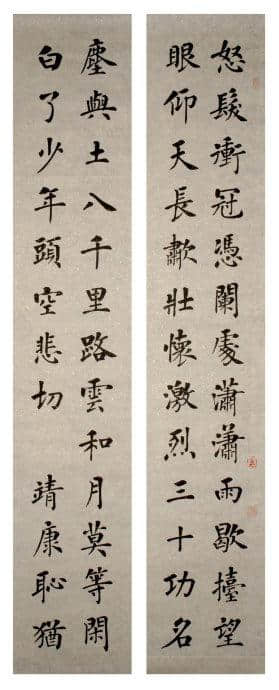 怒髮衝冠憑闌處瀟瀟雨歇擡望
眼仰天長歗壯懷激烈三十功名
塵與土八千里路雲和月莫等閑
白了少年頭空悲切 靖康恥猶